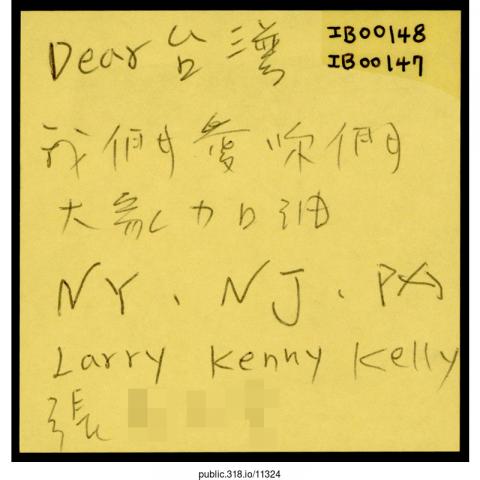 Dear 台灣
IB00148
IB00147
我們愛你們
大家加油
NY、NJ、PA
Larry Kenny Kelly
張
public.318.io/11324